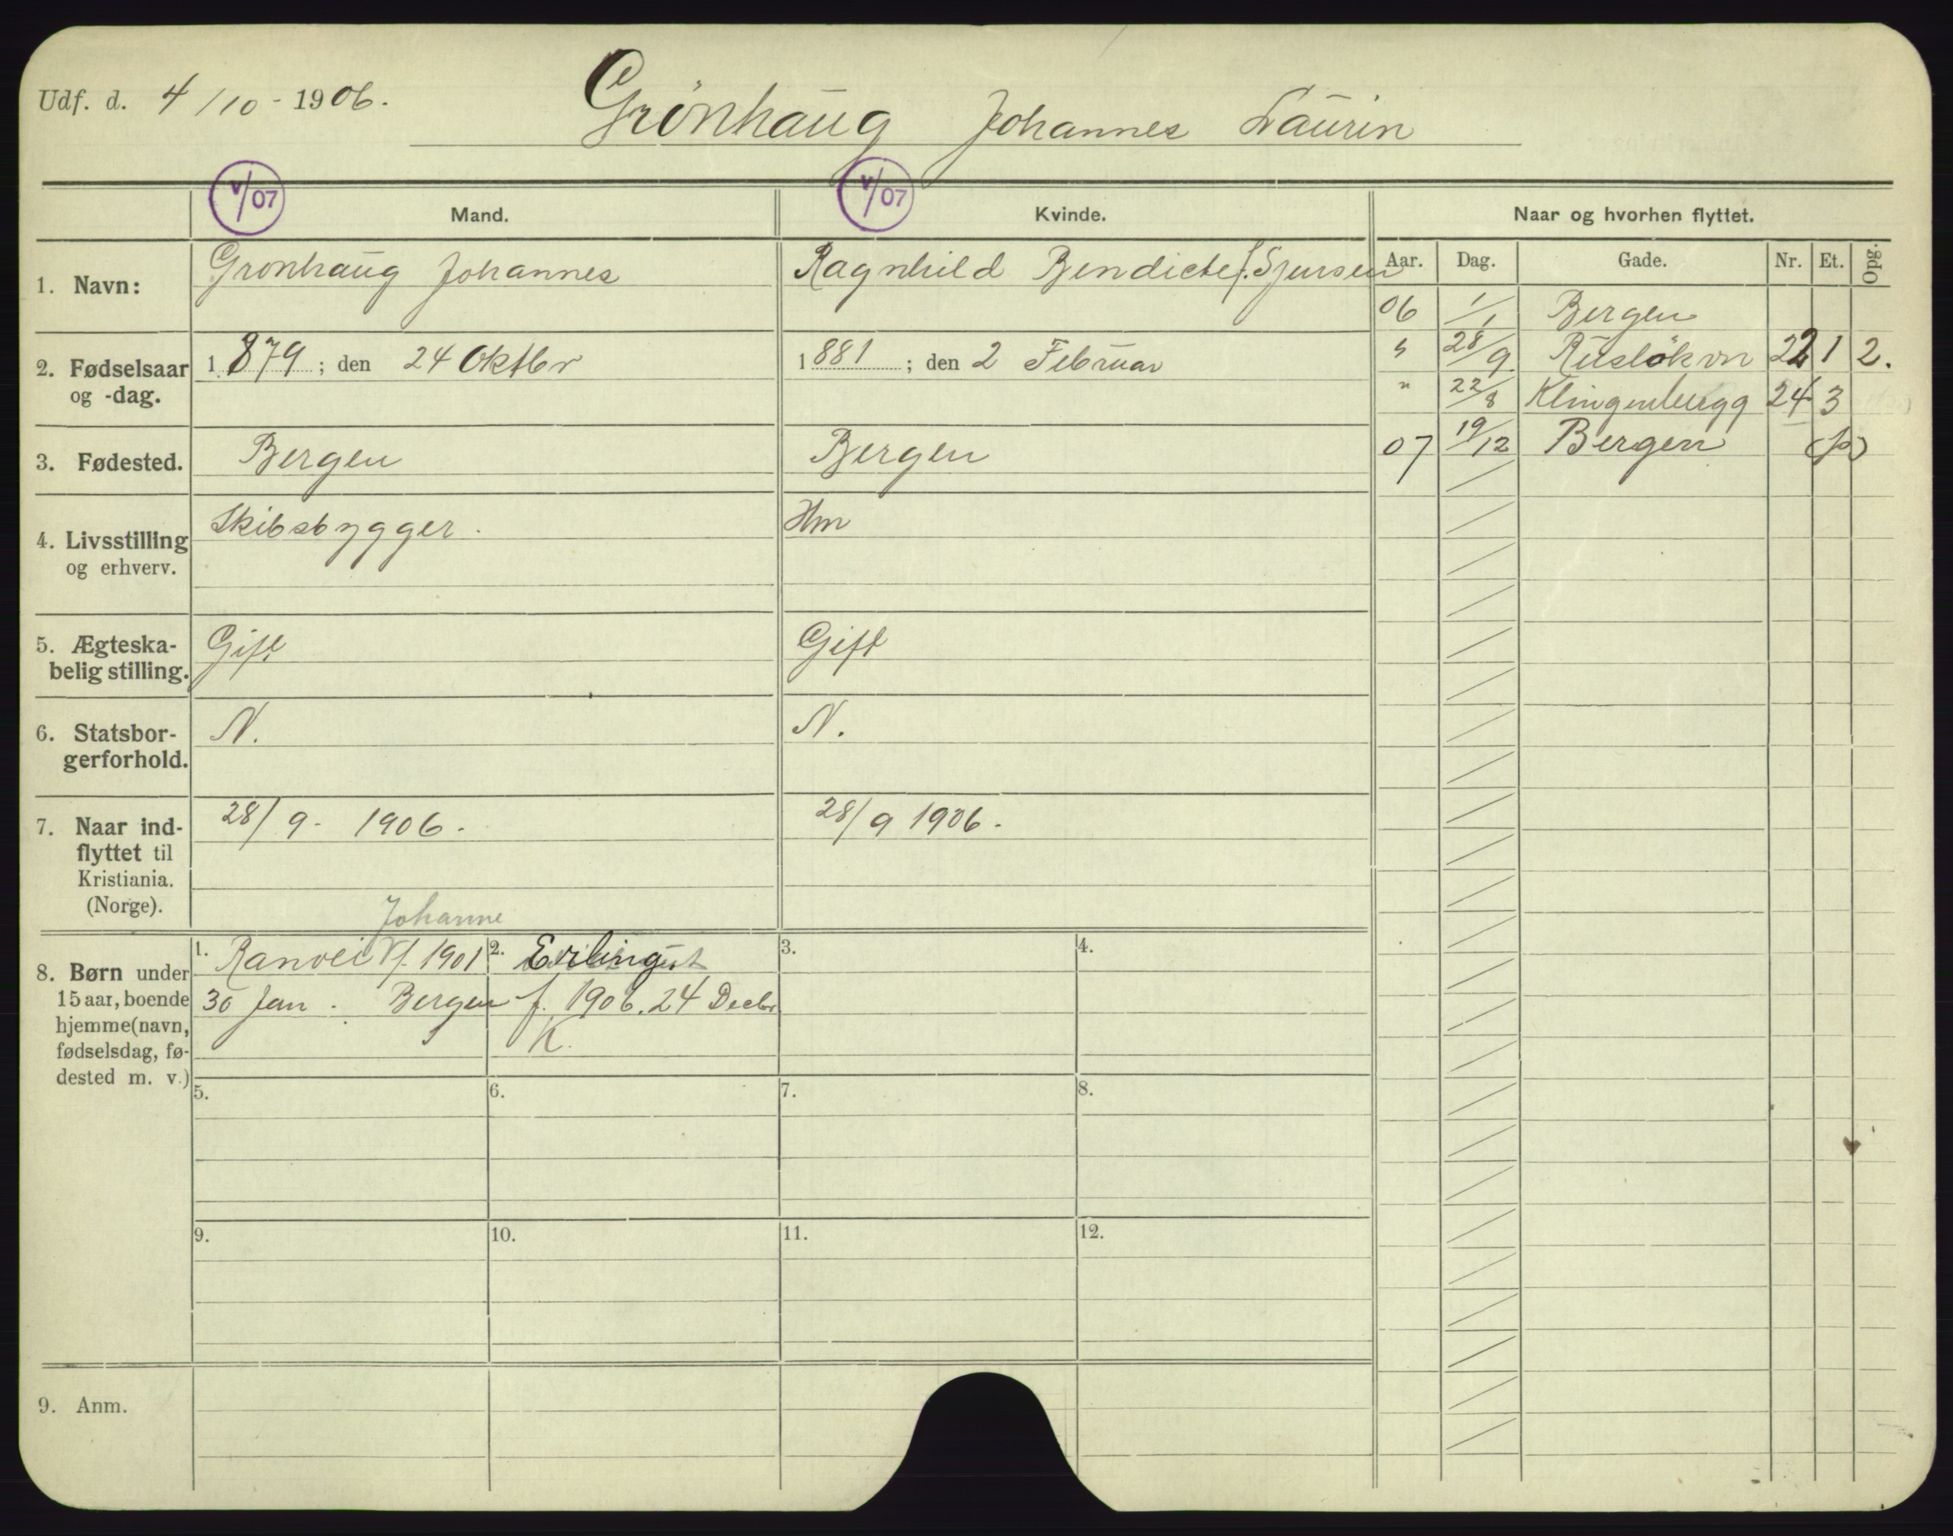 Udf. d. 4/10 - 1906. Grönhaug Johannes Laurin
V/07 V/07
Mand. Kvinde. Naar og hvorhen flyttet.
Aar. Dag. Gade. Nr. Et. Opg.
1. Navn: Grönhaug Johannes Ragnhild Bendicte f. Sjursen
06 1/1 Bergen
" 28/9 Rusløkvn 22 1 2.
" 22/8 Klingenbergg 24 3
07 19/12 Bergen (p)
2. Fødselsaar 1879; den 24 Oktbr 1881; den 2 Februar
og -dag.
3. Fødested. Bergen Bergen
4. Livsstilling Skibsbygger. Hm
og erhverv.
5. Ægteska- Gift Gift
belig stilling.
6. Statsbor- N. N.
gerforhold.
7. Naar ind- 28/9 - 1906. 28/9 1906.
flyttet til
Kristiania.
(Norge).
Johanne
8. Børn under
15 aar, boende
hjemme (navn,
fødselsdag, fø-
dested m. v.)
1. Ranvei f. 1901
30 Jan. Bergen
2. Erling
f. 1906. 24 Decbr
K.
3. 4.
5. 6. 7. 8.
9. 10. 11. 12.
9. Anm.